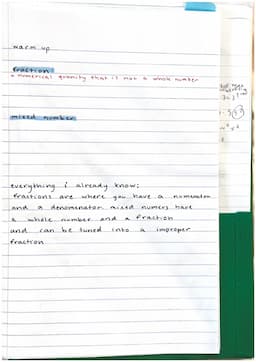 warm up
fraction:
a numerical quantity that is not a whole number
mixed number
everything i already know:
fractions are where you have a numerator
and a denominator mixed numers have
a whole number and a fraction
and can be tuned into a improper
fraction